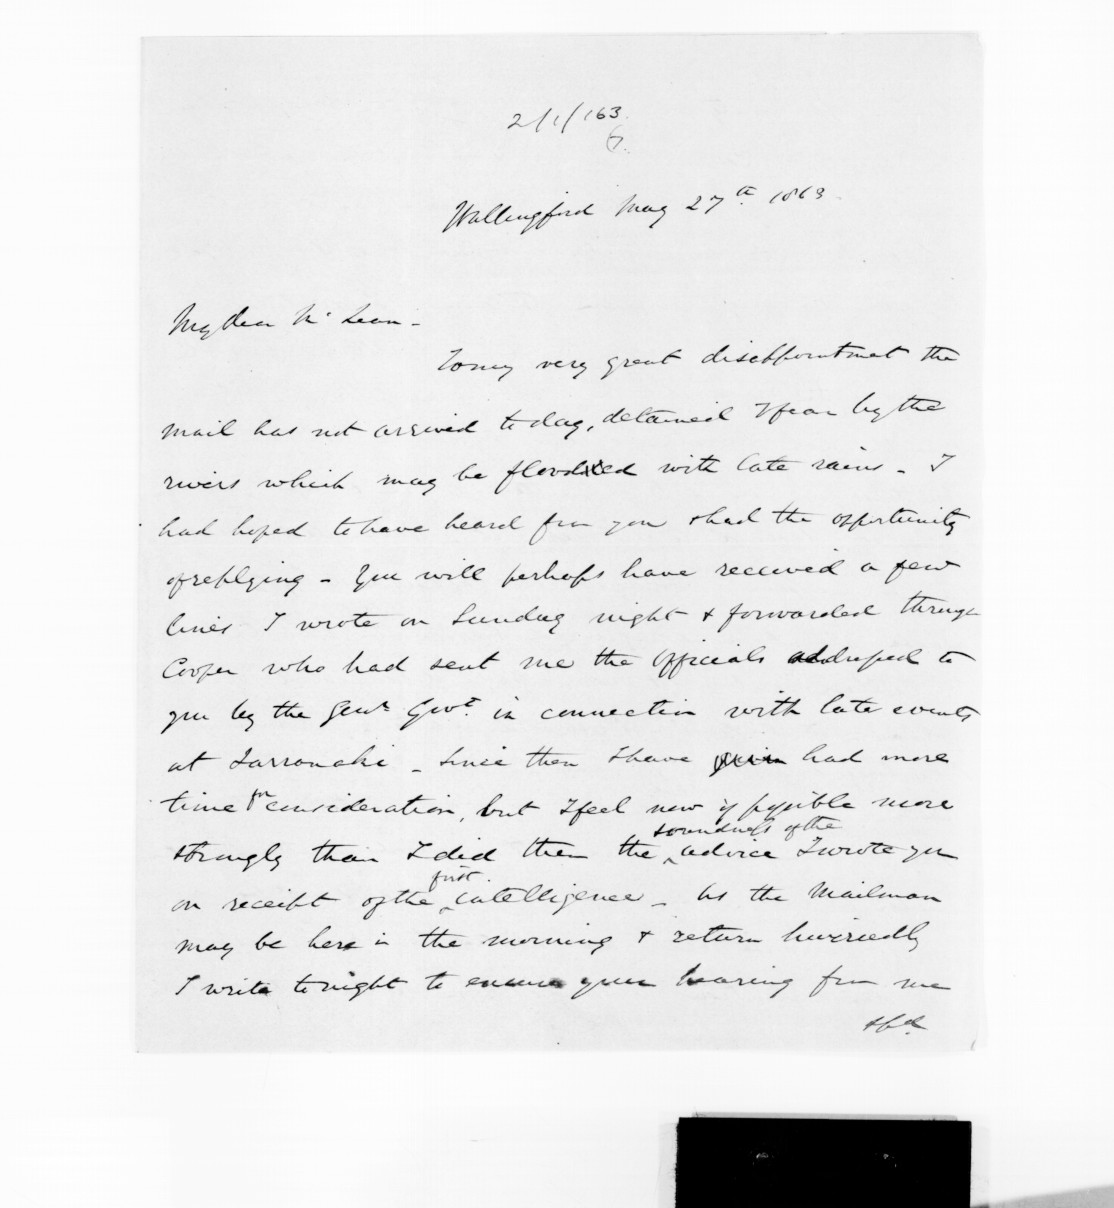 2/1/163
Wallingford May 27th 1863
My dear McLean -
To my very great disappointment the
mail has not arrived today, detained I fear by the
rivers which may be flooded with late rains - I
had hoped to have heard from you & had the opportunity
of replying - You will perhaps have received a few
lines I wrote on Sunday night & forwarded through
Cooper who had sent me the officials addressed to
you by the Genl. Govt. in connection with late events
at Tarranaki - Since then I have had more
time for consideration, but I feel now if possible more
strongly than I did then the soundness of the advice I wrote you
on receipt of the first intelligence - As the Mailman
may be here in the morning & return hurriedly
I write tonight to ensure your hearing from me